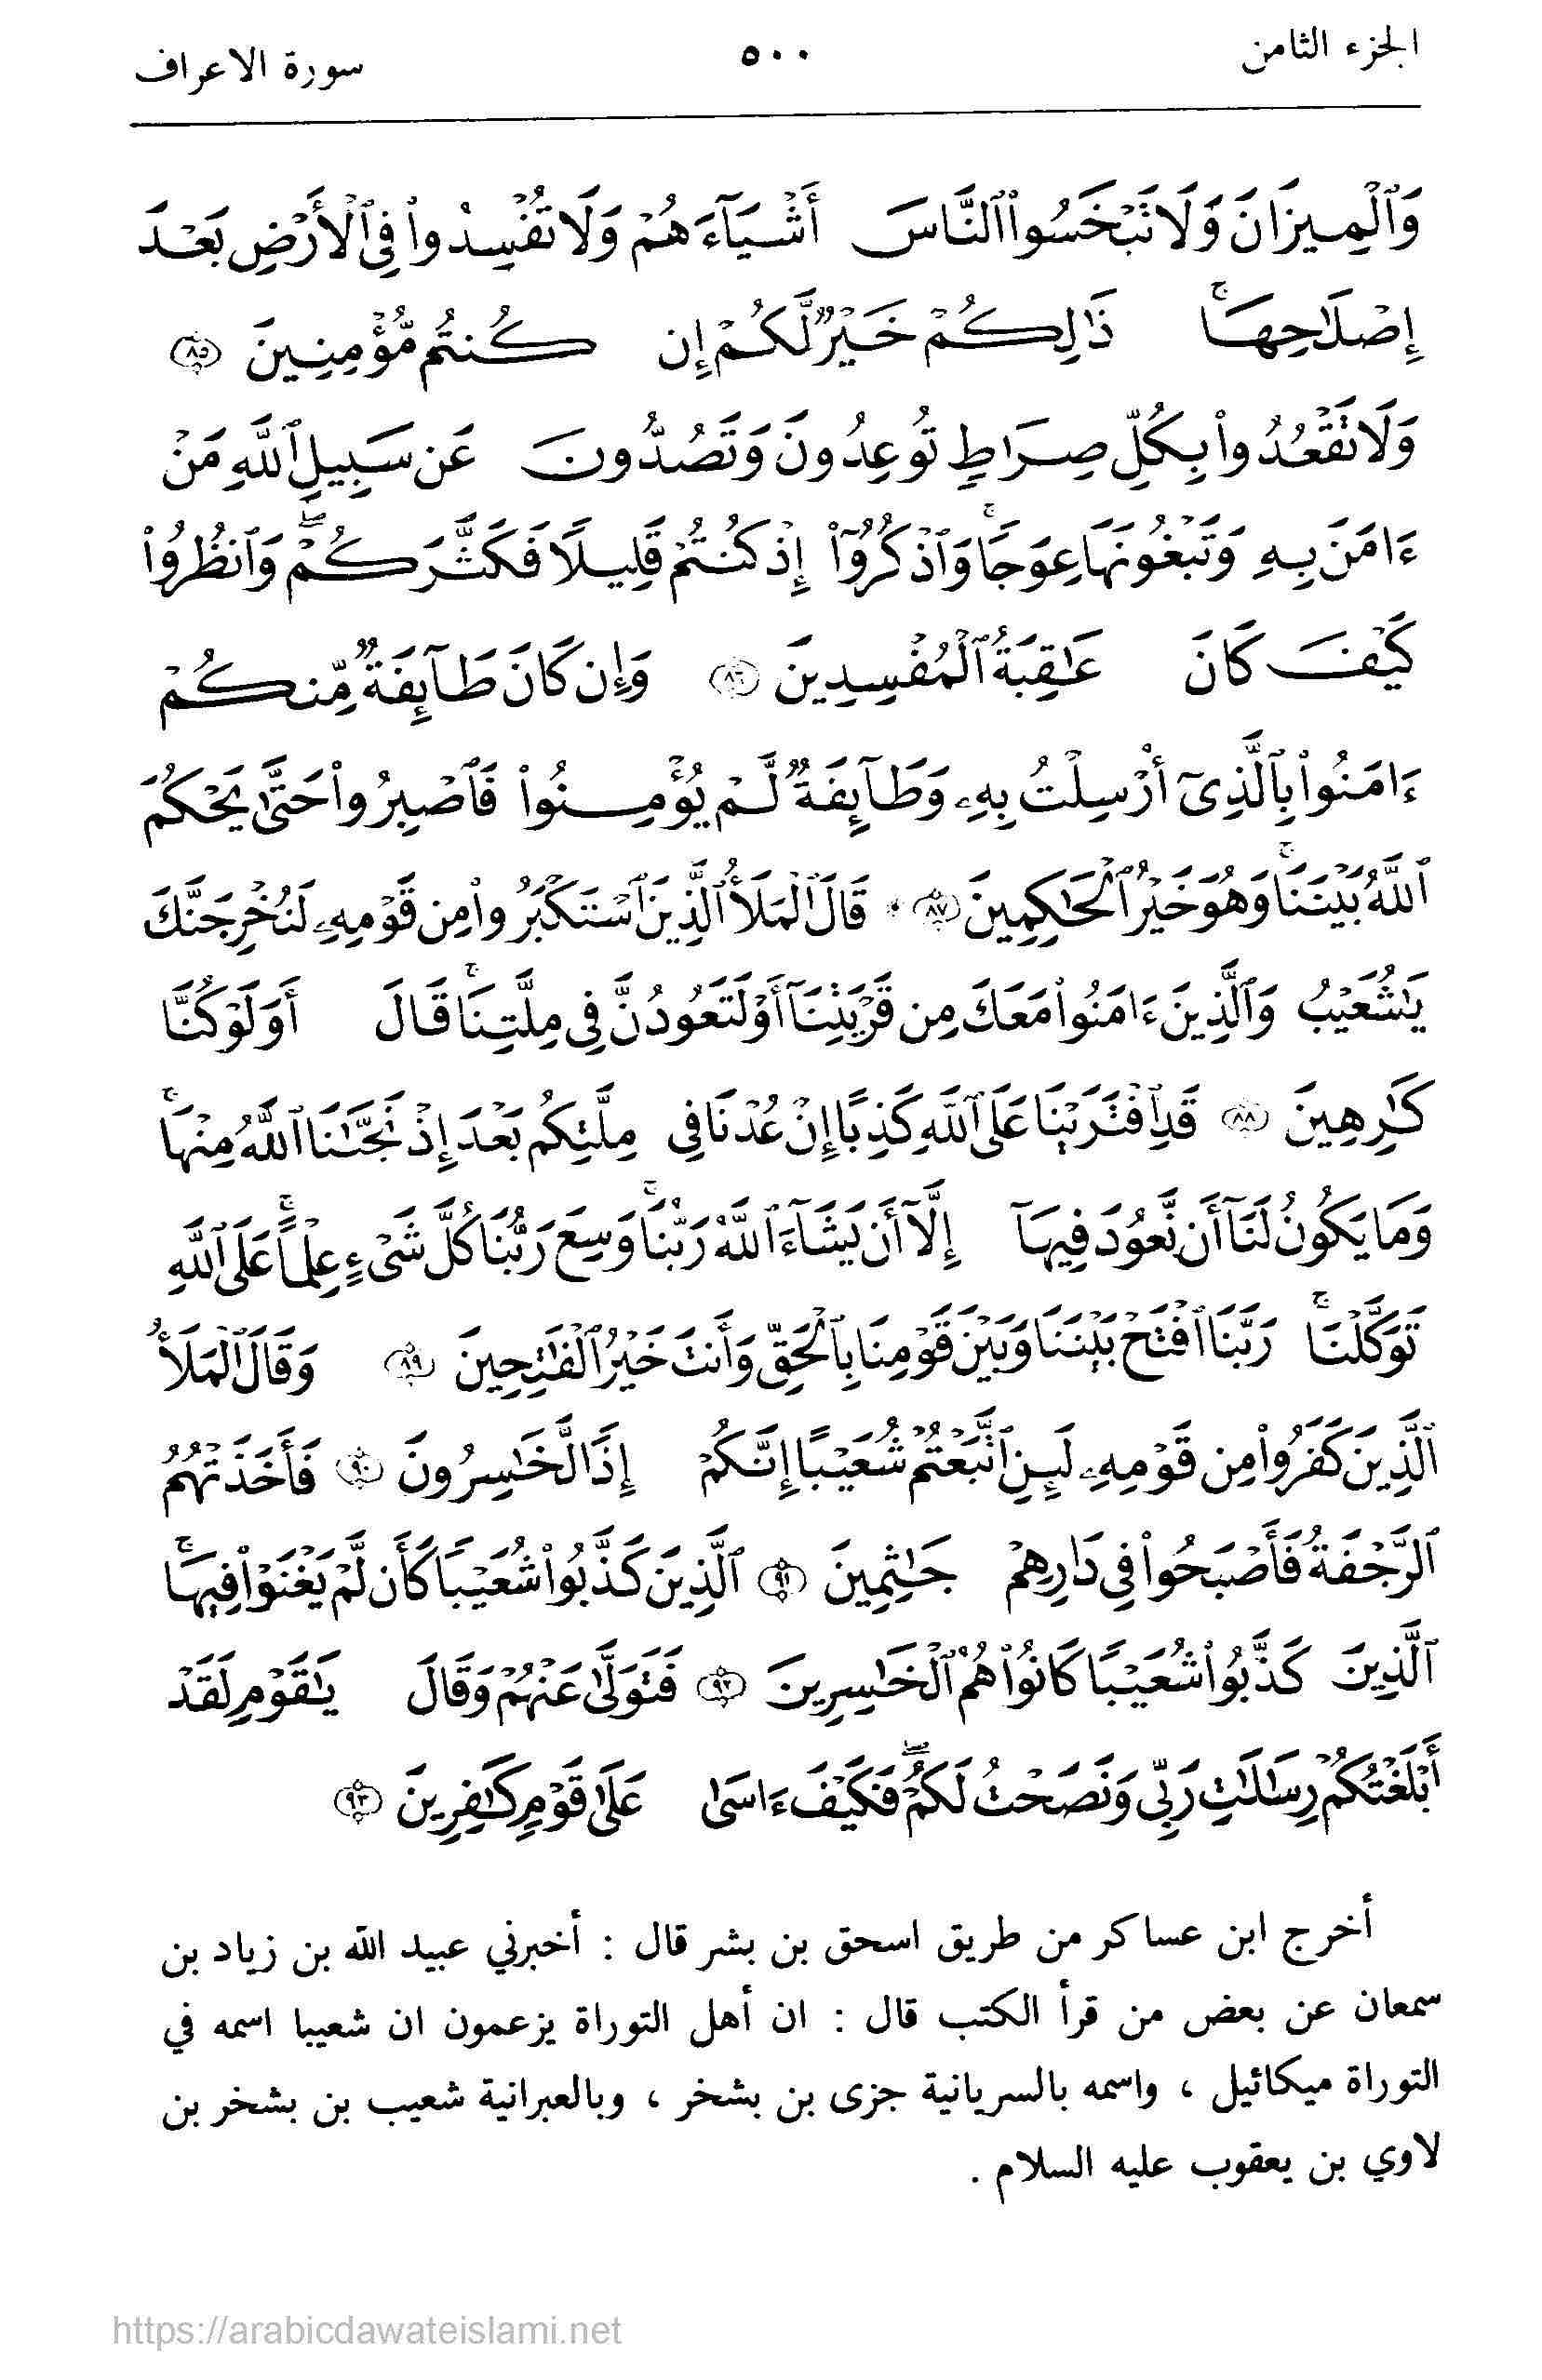 الجزء الثامن ٥٠٠ سورة الاعراف
وَٱلْمِيزَانَ وَلَا تَبْخَسُوا۟ ٱلنَّاسَ أَشْيَآءَهُمْ وَلَا تُفْسِدُوا۟ فِى ٱلْأَرْضِ بَعْدَ
إِصْلَـٰحِهَا ۚ ذَٰلِكُمْ خَيْرٌ لَّكُمْ إِن كُنتُم مُّؤْمِنِينَ ٨٥
وَلَا تَقْعُدُوا۟ بِكُلِّ صِرَٰطٍ تُوعِدُونَ وَتَصُدُّونَ عَن سَبِيلِ ٱللَّهِ مَنْ
ءَامَنَ بِهِۦ وَتَبْغُونَهَا عِوَجًا ۚ وَٱذْكُرُوٓا۟ إِذْ كُنتُمْ قَلِيلًا فَكَثَّرَكُمْ ۖ وَٱنظُرُوا۟
كَيْفَ كَانَ عَـٰقِبَةُ ٱلْمُفْسِدِينَ ٨٦ وَإِن كَانَ طَآئِفَةٌ مِّنكُمْ
ءَامَنُوا۟ بِٱلَّذِىٓ أُرْسِلْتُ بِهِۦ وَطَآئِفَةٌ لَّمْ يُؤْمِنُوا۟ فَٱصْبِرُوا۟ حَتَّىٰ يَحْكُمَ
ٱللَّهُ بَيْنَنَا ۚ وَهُوَ خَيْرُ ٱلْحَـٰكِمِينَ ٨٧ * قَالَ ٱلْمَلَأُ ٱلَّذِينَ ٱسْتَكْبَرُوا۟ مِن قَوْمِهِۦ لَنُخْرِجَنَّكَ
يَـٰشُعَيْبُ وَٱلَّذِينَ ءَامَنُوا۟ مَعَكَ مِن قَرْيَتِنَآ أَوْ لَتَعُودُنَّ فِى مِلَّتِنَا ۚ قَالَ أَوَلَوْ كُنَّا
كَـٰرِهِينَ ٨٨ قَدِ ٱفْتَرَيْنَا عَلَى ٱللَّهِ كَذِبًا إِنْ عُدْنَا فِى مِلَّتِكُم بَعْدَ إِذْ نَجَّىٰنَا ٱللَّهُ مِنْهَا ۚ
وَمَا يَكُونُ لَنَآ أَن نَّعُودَ فِيهَآ إِلَّآ أَن يَشَآءَ ٱللَّهُ رَبُّنَا ۚ وَسِعَ رَبُّنَا كُلَّ شَىْءٍ عِلْمًا ۚ عَلَى ٱللَّهِ
تَوَكَّلْنَا ۚ رَبَّنَا ٱفْتَحْ بَيْنَنَا وَبَيْنَ قَوْمِنَا بِٱلْحَقِّ وَأَنتَ خَيْرُ ٱلْفَـٰتِحِينَ ٨٩ وَقَالَ ٱلْمَلَأُ
ٱلَّذِينَ كَفَرُوا۟ مِن قَوْمِهِۦ لَئِنِ ٱتَّبَعْتُمْ شُعَيْبًا إِنَّكُمْ إِذًا لَّخَـٰسِرُونَ ٩٠ فَأَخَذَتْهُمُ
ٱلرَّجْفَةُ فَأَصْبَحُوا۟ فِى دَارِهِمْ جَـٰثِمِينَ ٩١ ٱلَّذِينَ كَذَّبُوا۟ شُعَيْبًا كَأَن لَّمْ يَغْنَوْا۟ فِيهَا ۚ
ٱلَّذِينَ كَذَّبُوا۟ شُعَيْبًا كَانُوا۟ هُمُ ٱلْخَـٰسِرِينَ ٩٢ فَتَوَلَّىٰ عَنْهُمْ وَقَالَ يَـٰقَوْمِ لَقَدْ
أَبْلَغْتُكُمْ رِسَـٰلَـٰتِ رَبِّى وَنَصَحْتُ لَكُمْ ۖ فَكَيْفَ ءَاسَىٰ عَلَىٰ قَوْمٍ كَـٰفِرِينَ ٩٣
أخرج ابن عساكر من طريق اسحق بن بشر قال : أخبرني عبيد الله بن زياد بن
سمعان عن بعض من قرأ الكتب قال : ان أهل التوراة يزعمون ان شعيبا اسمه في
التوراة ميكائيل ، واسمه بالسريانية جزى بن بشخر ، وبالعبرانية شعيب بن بشخر بن
لاوي بن يعقوب عليه السلام .
https://arabicdawateislami.net